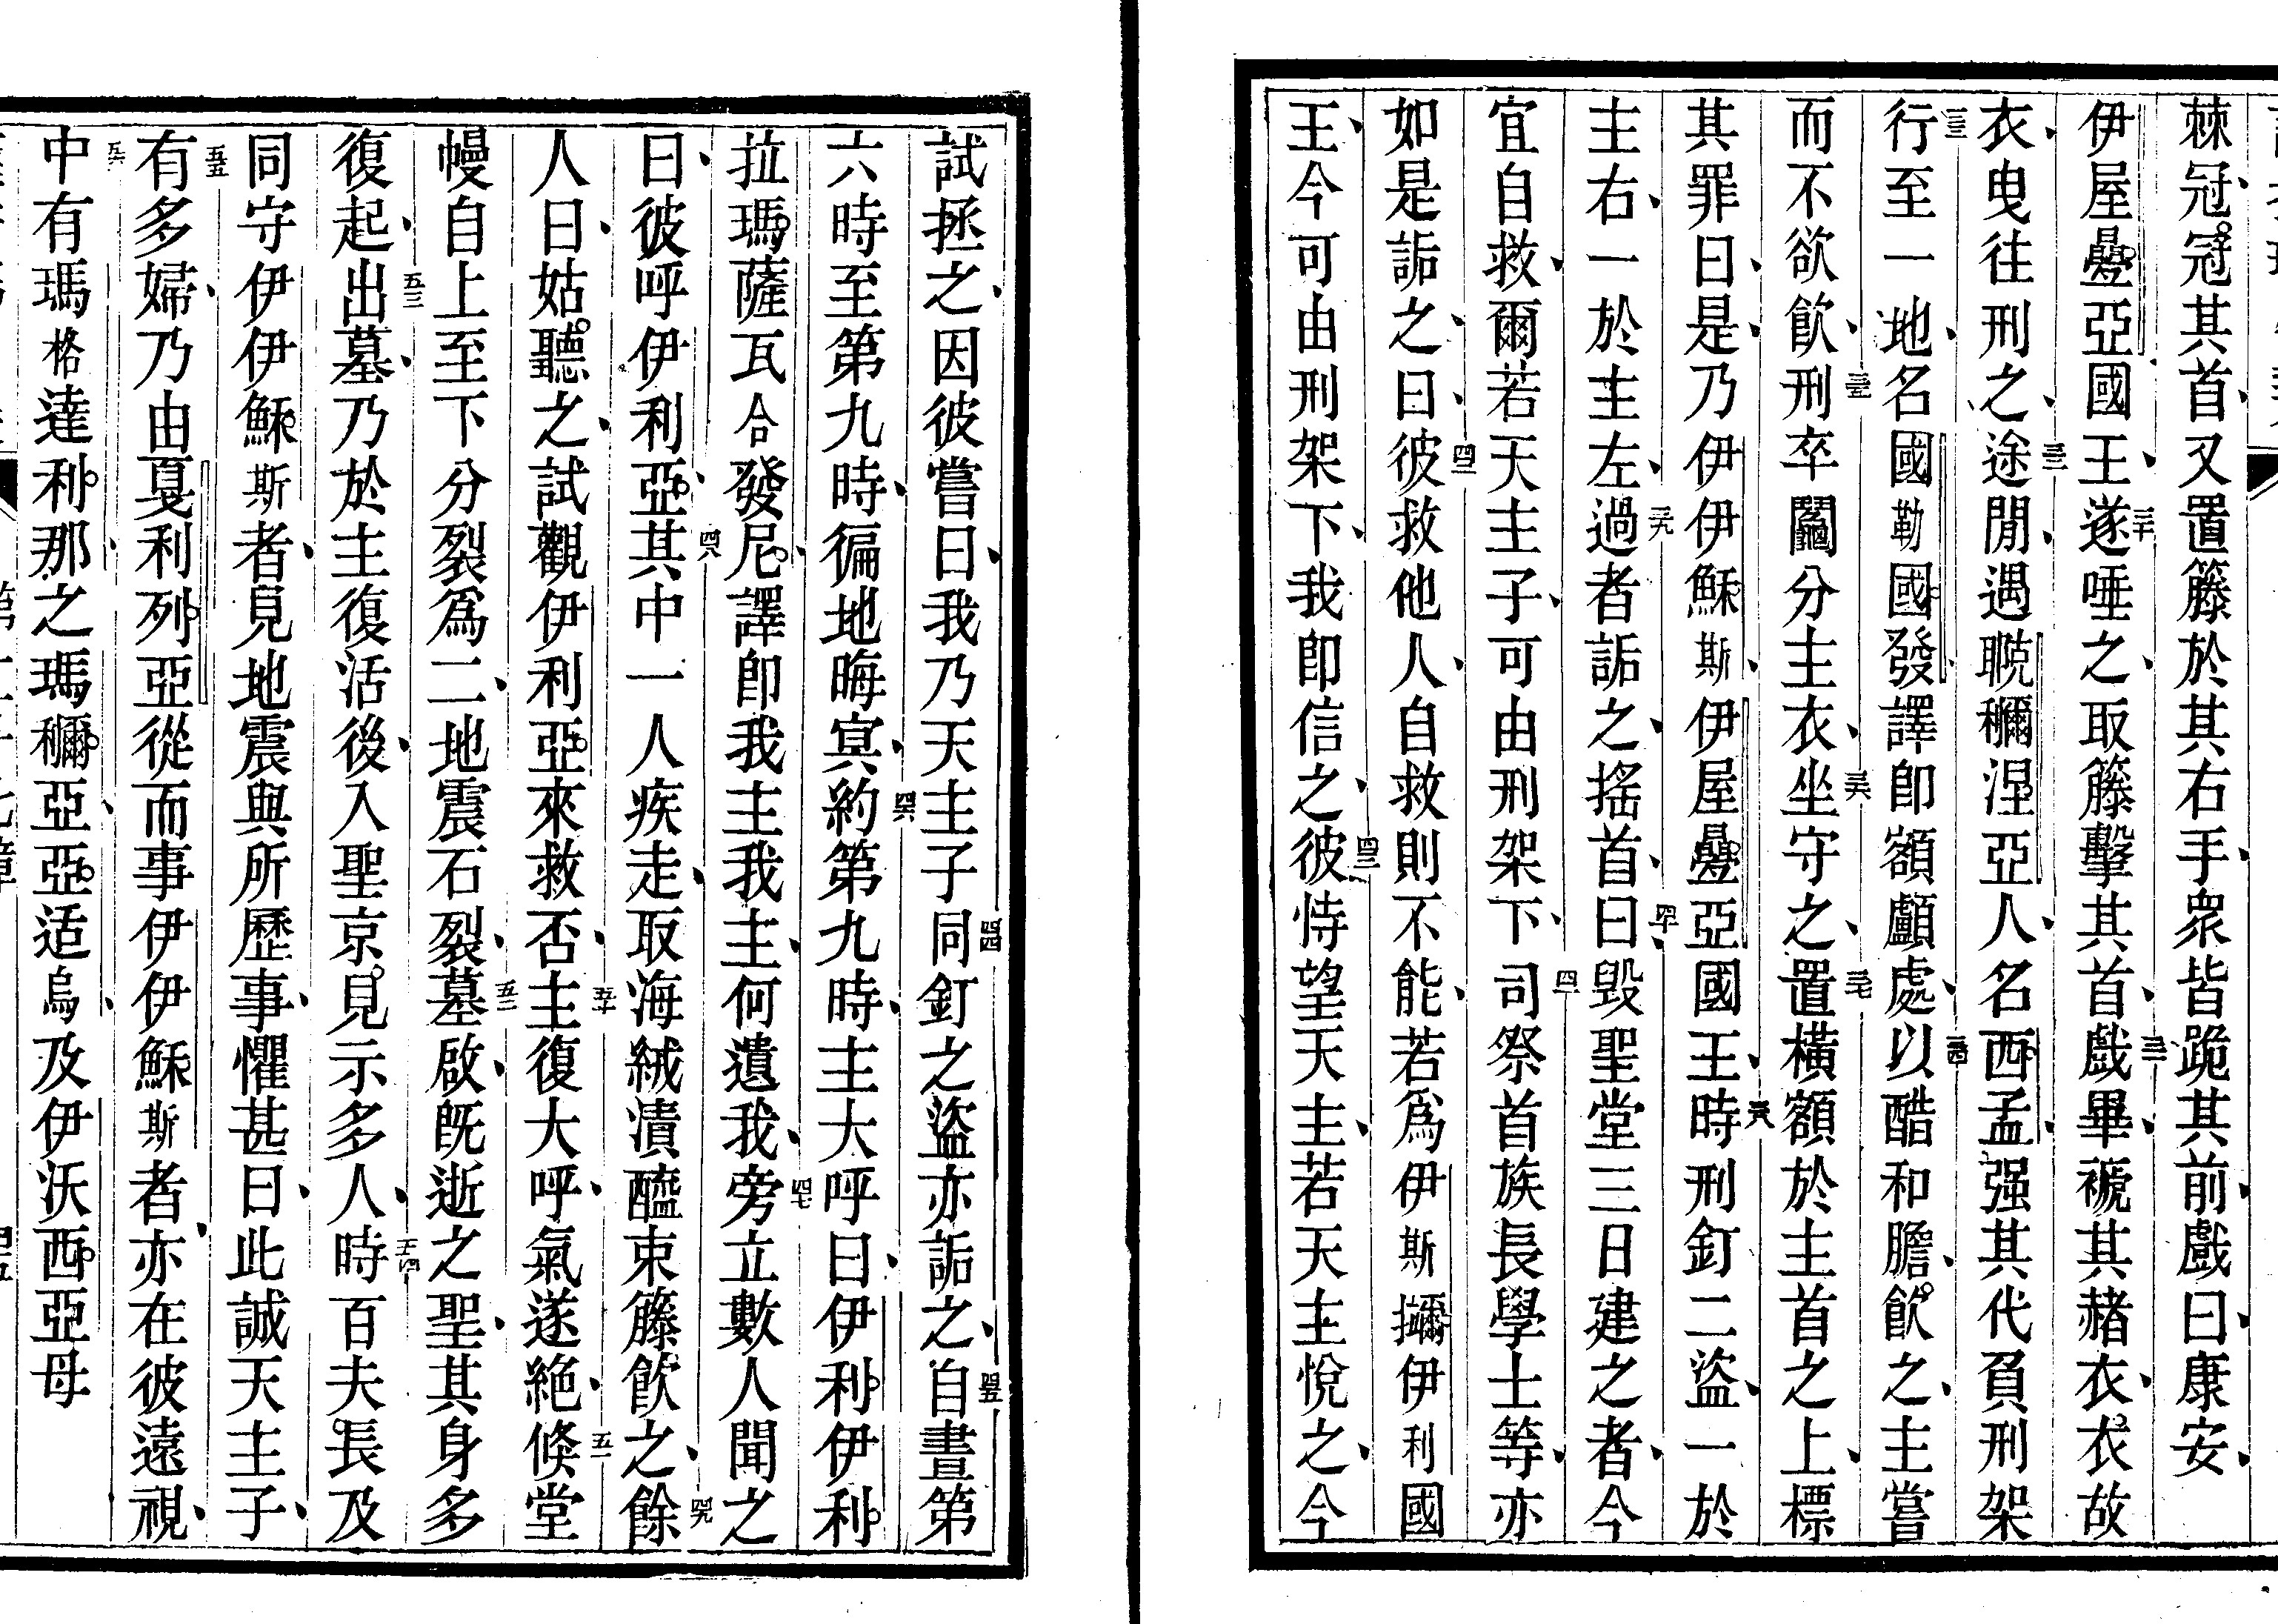 棘冠冠其首又置籐於其右手衆皆跪其前戲曰康安
伊屋疊亞國王三十遂唾之取籐擊其首三一戲畢褫其赭衣衣故
衣曳往刑之三二途閒遇䀳穪涅亞人名西孟强其代負刑架
三三行至一地名國勒國發譯卽額顱處三四以酷和膽飲之主嘗
而不欲飲三五刑卒鬮分主衣三六坐守之三七置橫額於主首之上標
其罪曰是乃伊伊穌斯伊屋疊亞國王三八時刑釘二盜一於
主右一於主左三九過者詬之搖首四十曰毀聖堂三日建之者今
宜自救爾若天主子可由刑架下四一司祭首族長學士等亦
如是詬之曰四二彼救他人自救則不能若爲伊斯㩶伊利國
王今可由刑架下我卽信之四三彼恃望天主若天主悅之今
試拯之因彼嘗曰我乃天主子四四同釘之盜亦詬之四五自晝第
六時至第九時徧地晦冥四六約第九時主大呼曰伊利伊利
拉瑪薩瓦合發尼譯卽我主我主何遺我四七旁立數人聞之
曰彼呼伊利亞四八其中一人疾走取海絨漬醯束籐飲之四九餘
人曰姑聽之試觀伊利亞來救否五十主復大呼氣遂絶五一倐堂
幔自上至下分裂爲二地震石裂五二墓啟旣逝之聖其身多
復起五三出墓乃於主復活後入聖京見示多人五四時百夫長及
同守伊伊穌斯者見地震與所歷事懼甚曰此誠天主子
五五有多婦乃由戛利列亞從而事伊伊穌斯者亦在彼遠視
五六中有瑪格達利那之瑪穪亞亞适烏及伊沃西亞母